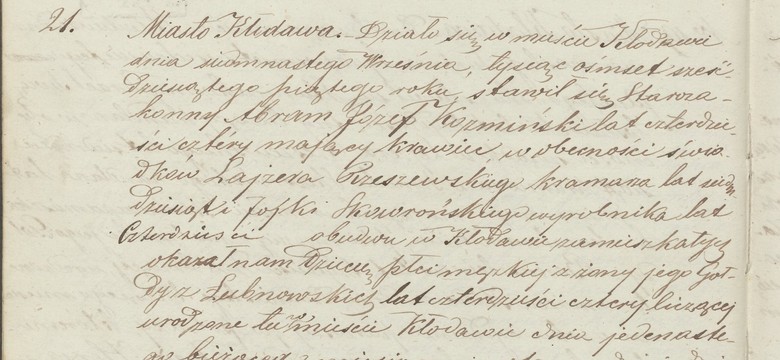 21. Miasto Kłodawa. Działo się w mieście Kłodawie
dnia siedmnastego Września, tysiąc ośmset sześć-
dziesiątego piątego roku, stawił się Staroza-
konny Abram Józef Koźmiński lat czterdzie-
ści cztéry mający krawiec, w obecności świa-
dków Lajzera Rzeszewskiego kramarza lat siedm
dziesiąt i Joski Skowrońskiego wyrobnika lat
Czterdzieści obudwu w Kłodawie zamieszkałych
okazał nam dziecię płci męzkiej z żony jego Goł-
dy z Lubnowskich lat czterdzieści cztery liczącej
urodzone tu w mieście Kłodawie dnia jedenaste-
go bieżącego